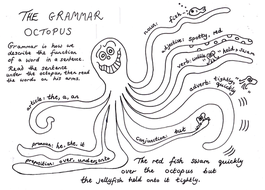 THE GRAMMAR
OCTOPUS
Grammar is how we
describe the function
of a word in a sentence.
Read the sentence
under the octopus, then read
the words on his arms.
noun: fish
adjective: spotty, red
verb: held, swam
adverb: tightly
quickly
article: the, a, an
pronoun: he, she, it
preposition: over, underneath
conjunction: but
The red fish swam quickly
over the octopus but
the jellyfish held onto it tightly.